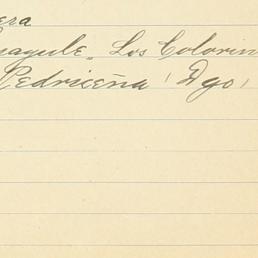 era
Guayule, Los Colorin
Pedriceña, Dgo,